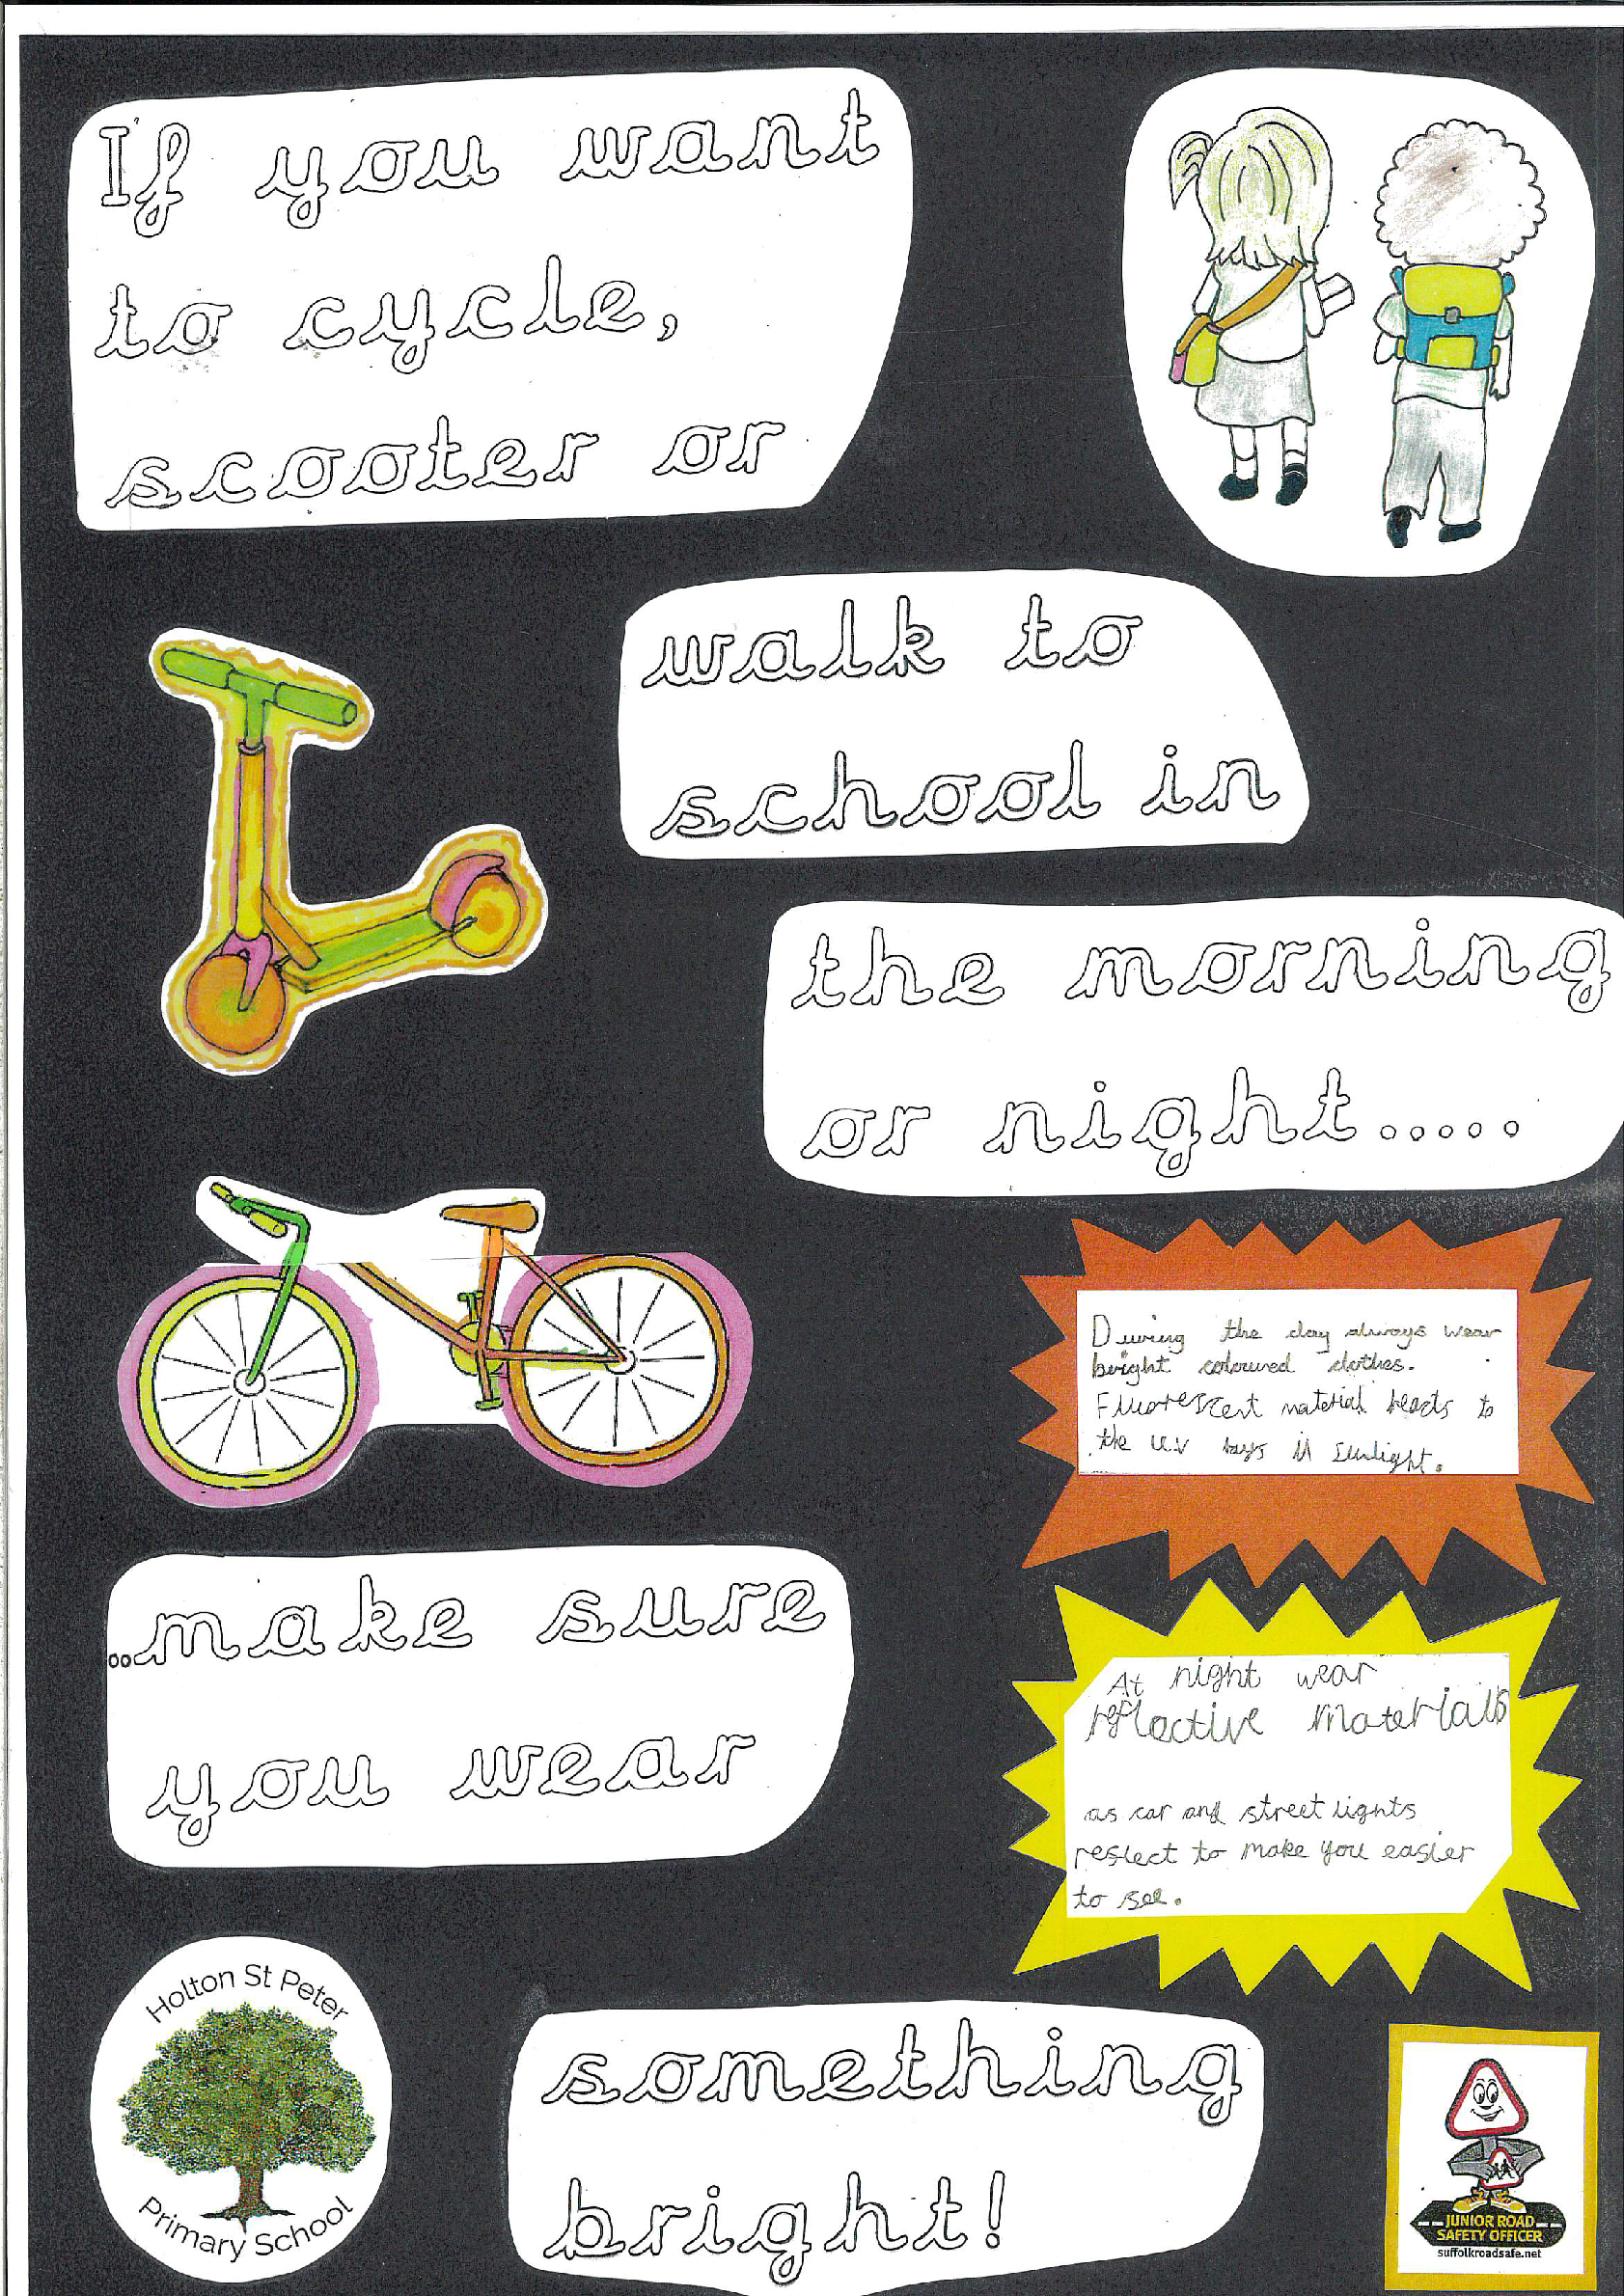 If you want
to cycle,
scooter or
walk to
school in
the morning
or night.....
During the day always wear
bright coloured clothes.
Fluorescent material reacts to
the U.V rays in sunlight.
..make sure
you wear
At night wear
reflective materials
as car and street lights
reflect to make you easier
to see.
Holton St Peter
Primary School
something
bright!
JUNIOR ROAD
SAFETY OFFICER
suffolkroadsafe.net